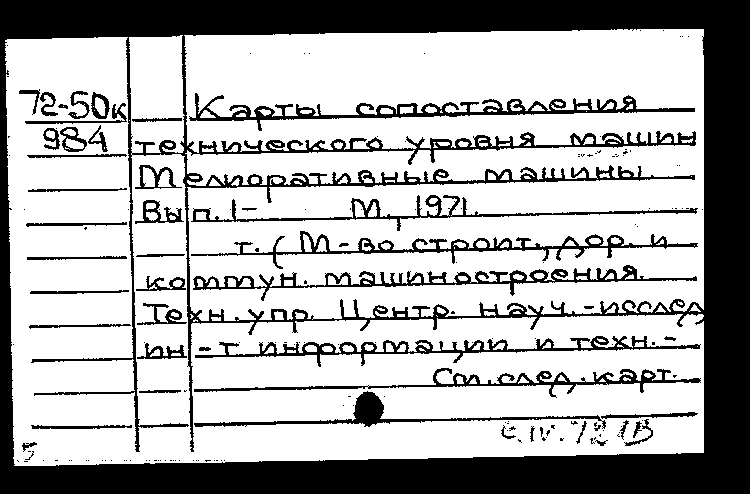 72-50к Карты сопоставления
984 технического уровня машин
Мелиоративные машины.
Вып. 1- М., 1971.
т. (М-во строит., дор. и
коммун. машиностроения.
Техн. упр. Центр. науч.-исслед
ин-т информации и техн.-
См. след. карт.
IV.72
5